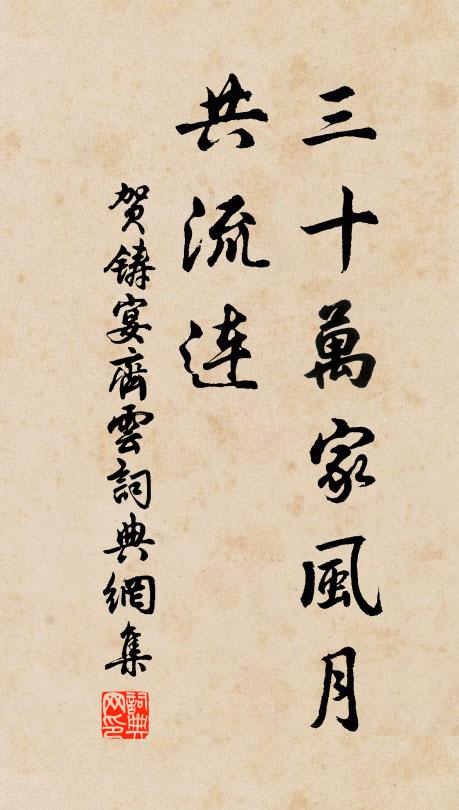 三十萬家風月
共流连
贺铸宴齊雲詞典網集
詞典网印